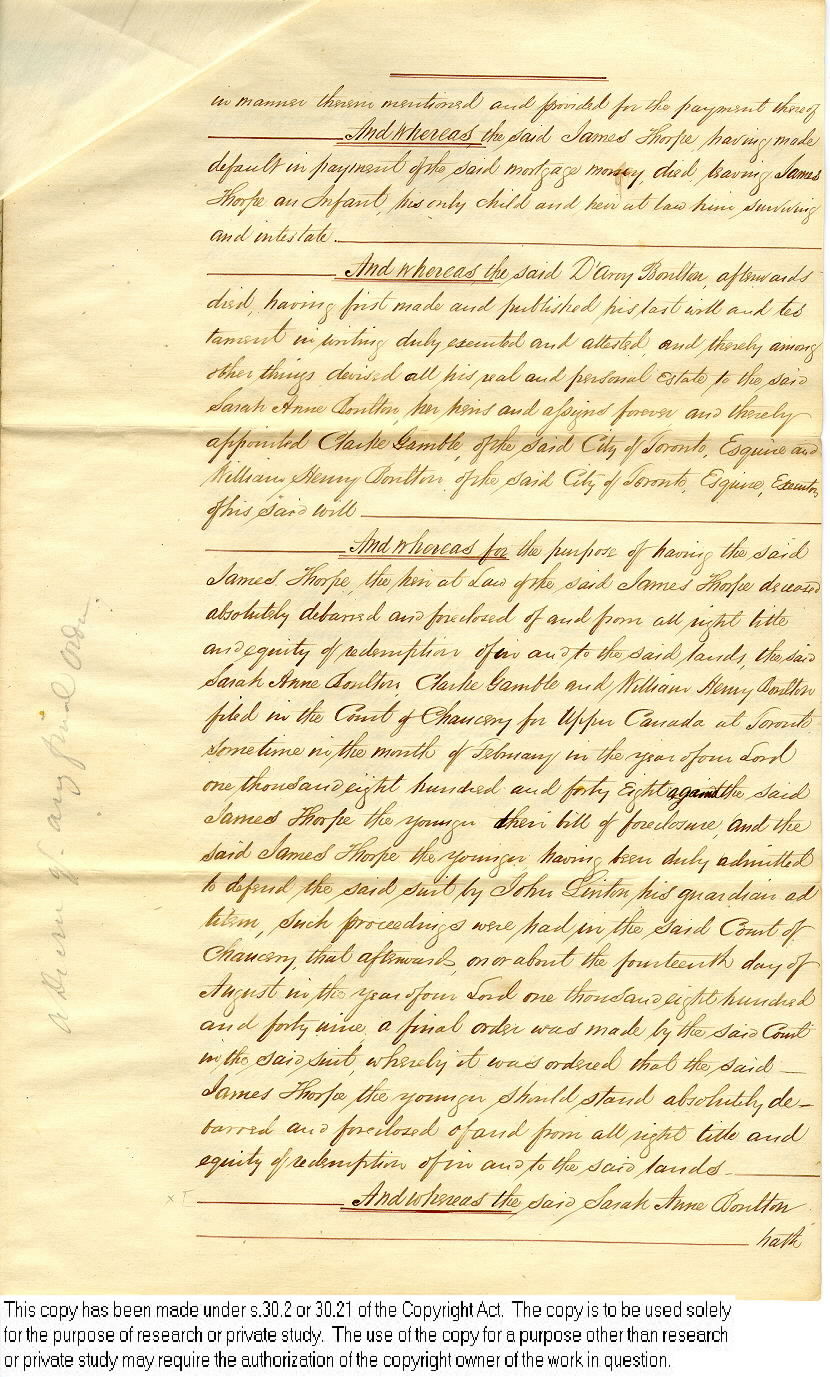 in manner therein mentioned and provided for the payment thereof
And whereas the said James Thorpe having made
default in payment of the said mortgage money died, leaving James
Thorpe an Infant, his only child and heir at law him surviving
and intestate.
And whereas, the said D'Arcy Boulton, afterwards
died, having first made and published his last will and tes
tament in writing duly executed and attested, and thereby among
other things devised all his real and personal Estate to the said
Sarah Anne Boulton, her heirs and assigns forever and thereby
appointed Clarke Gamble, of the said City of Toronto, Esquire and
William Henry Boulton of the said City of Toronto, Esquire, Executors
of his said will
And whereas for the purpose of having the said
James Thorpe, the heir at Law of the said James Thorpe deceased
absolutely debarred and foreclosed of and from all right title
and equity of redemption of in and to the said lands, the said
Sarah Anne Boulton, Clarke Gamble and William Henry Boulton
filed in the Court of Chancery for Upper Canada at Toronto
sometime in the month of February in the year of our Lord
one thousand eight hundred and forty Eight against the said
James Thorpe the younger their bill of foreclosure, and the
said James Thorpe the younger having been duly admitted
to defend the said suit by John Linton, his guardian ad
litem, such proceedings were had in the said Court of
Chancery, that afterwards, on or about the fourteenth day of
August in the year of our Lord one thousand eight hundred
and forty nine, a final order was made by the said Court
in the said suit, whereby it was ordered that the said —
James Thorpe the younger should stand absolutely de-
barred and foreclosed of and from all right title and
equity of redemption of in and to the said lands.
x
And whereas the said Sarah Anne Boulton
hath
of any final order.
This copy has been made under s.30.2 or 30.21 of the Copyright Act. The copy is to be used solely
for the purpose of research or private study. The use of the copy for a purpose other than research
or private study may require the authorization of the copyright owner of the work in question.